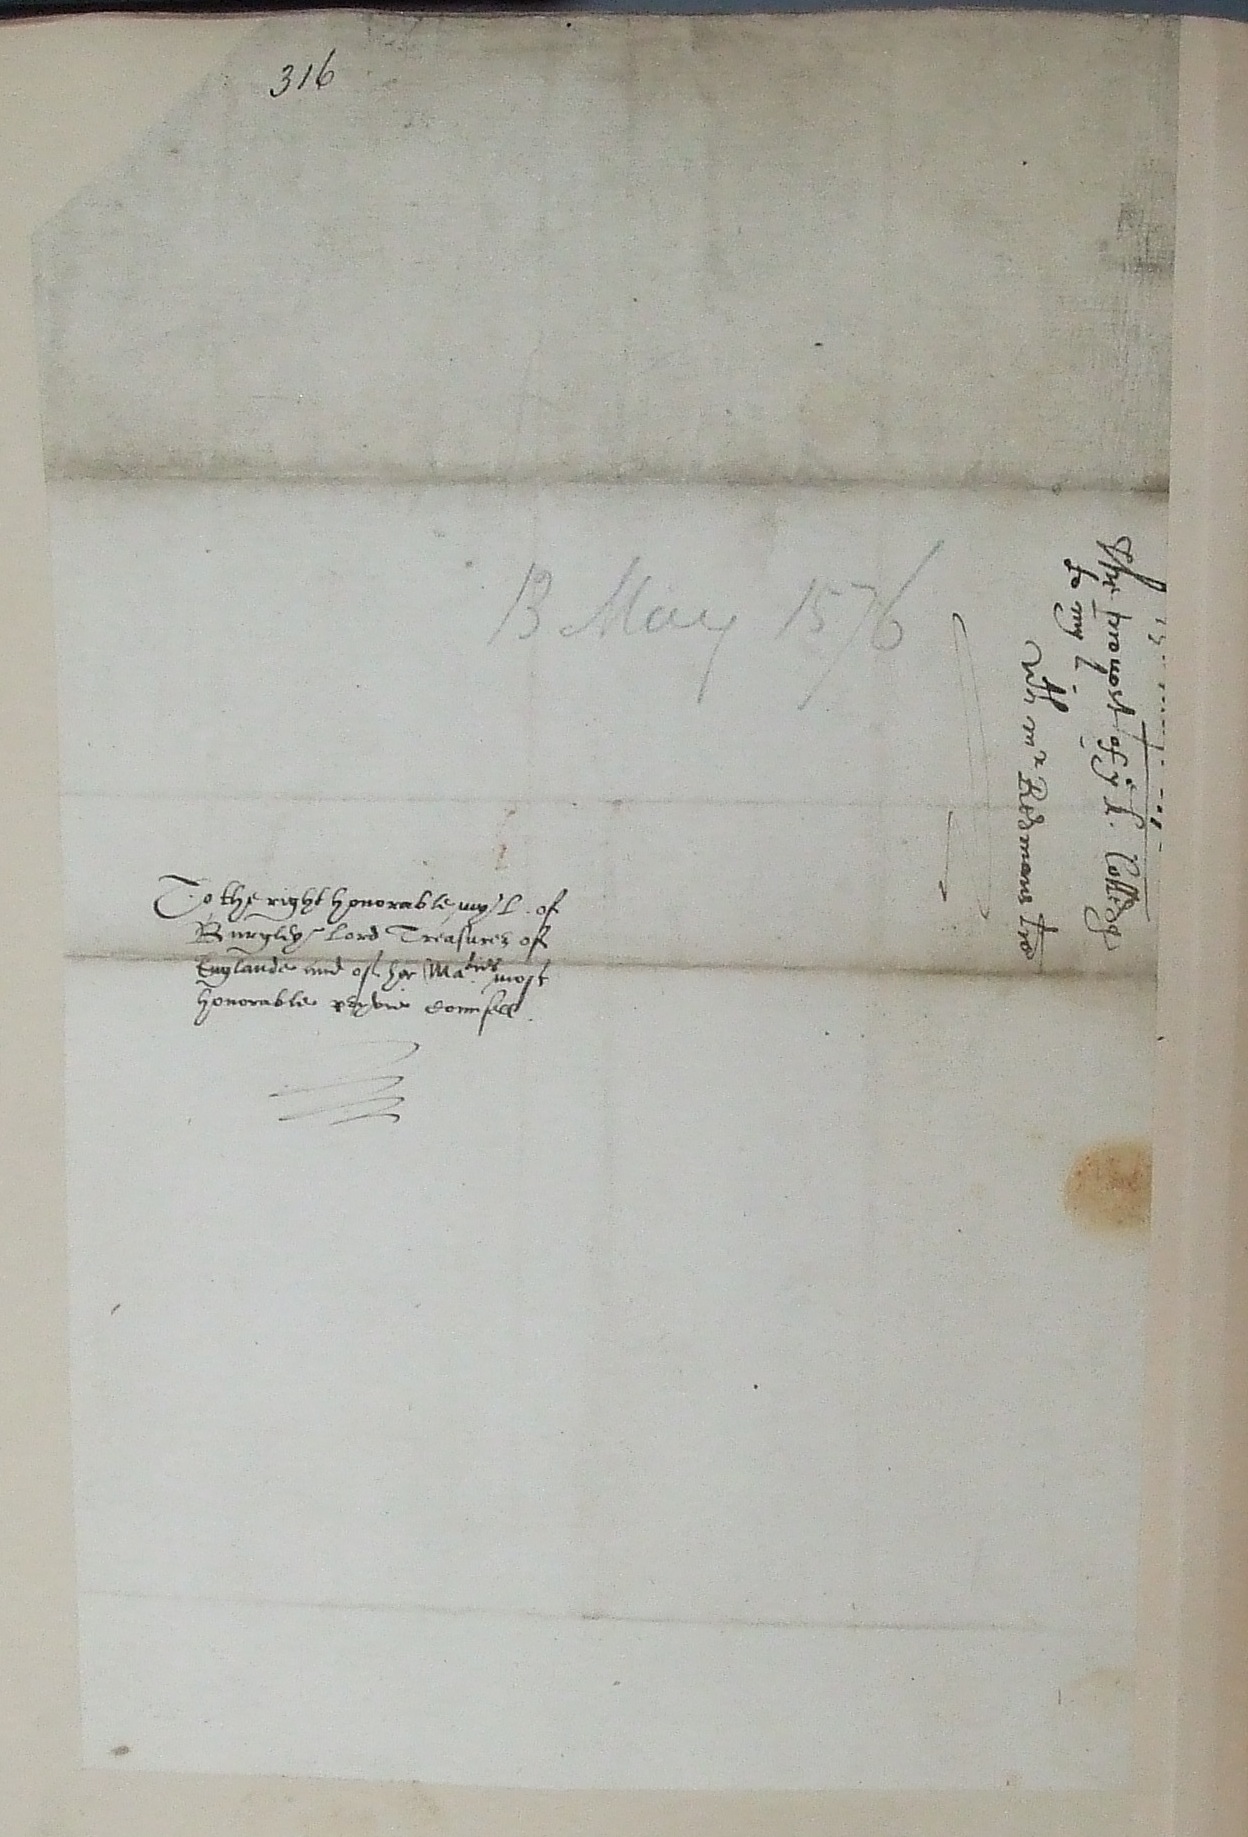 316
13 May 1576
To the right honorable my L. of
Burgley Lord Treasurer of
Englande and of her Maties most
honorable pryvie counsell.
The provost of ye k. Colledg
to my L.
with mr Redmans lre